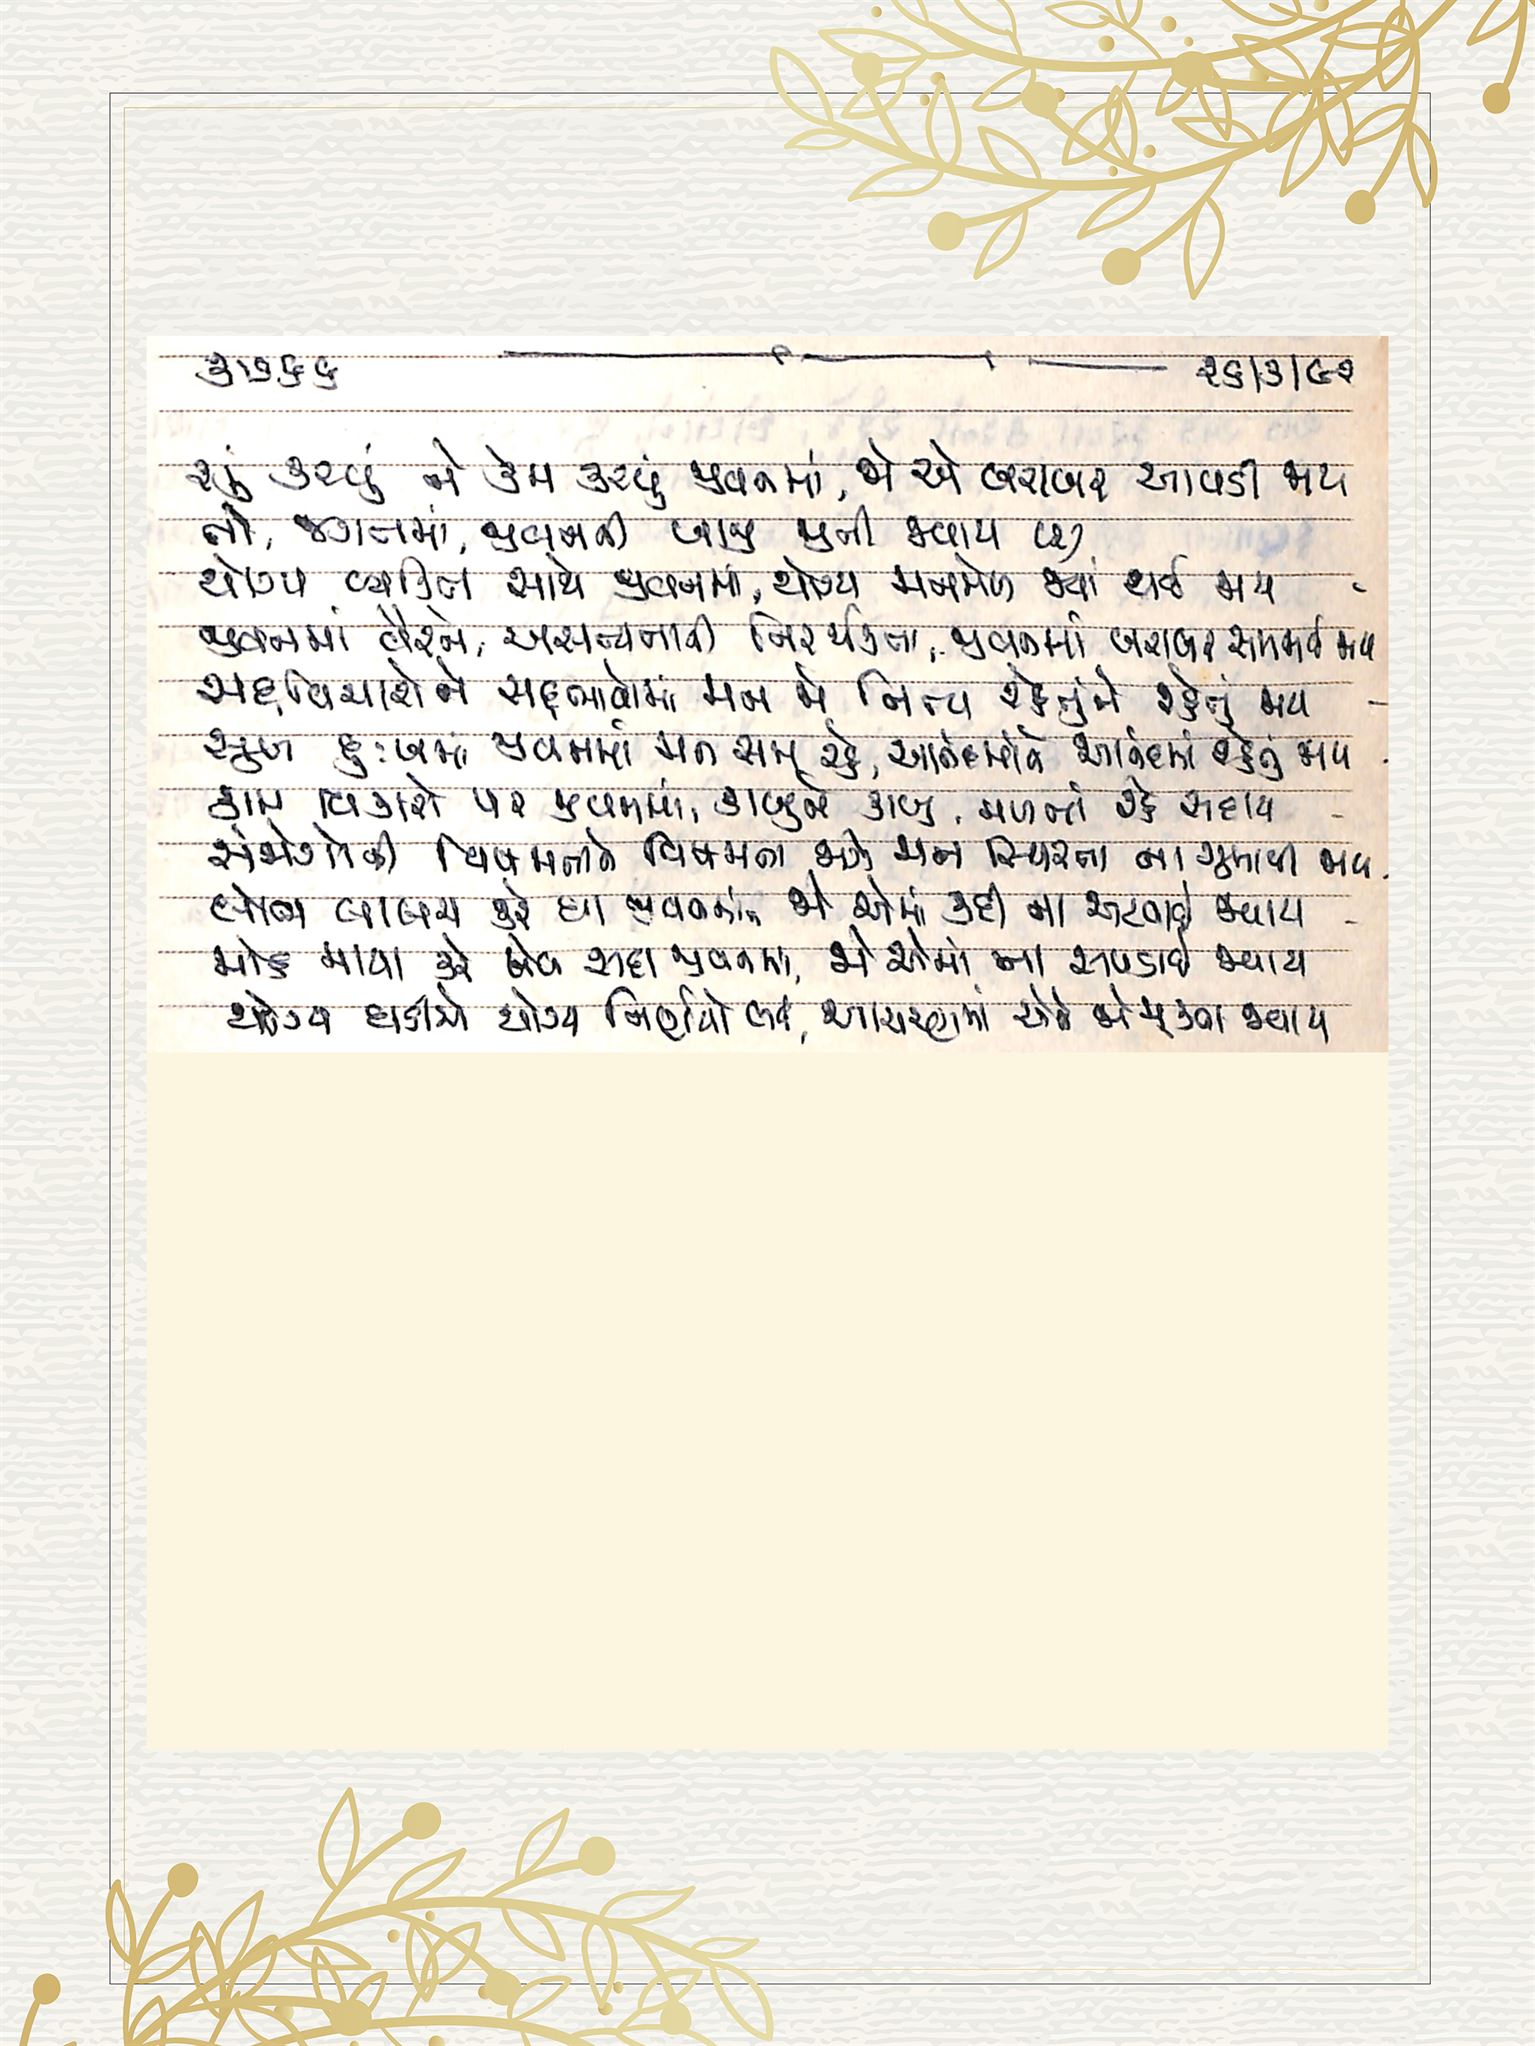 ૩૭૬૬ ૨૬/૩/૯૨
શું કરવું ને કેમ કરવું જીવનમાં, જો એ બરાબર આવડી જાય
તો, જગતમાં, જીવનની બાજી જીતી જવાય (૨)
યોગ્ય વ્યક્તિ સાથે જીવનમાં, યોગ્ય મનમેળ જ્યાં થઈ જાય -
જીવનમાં વૈરને, અસત્યતાની નિરર્થકતા, જીવનમાં બરાબર સમજાઈ જાય
સદ્દવિચારોને સદ્દભાવોમાં મન જો નિત્ય રહેતુંને રહેતું જાય -
સુખ દુઃખમાં જીવનમાં મન સમ રહે, આનંદમાંને આનંદમાં રહેતું જાય -
કામ વિકારો પર જીવનમાં, કાબૂને કાબૂ, મળતાં રહે સદાય -
સંજોગોની વિષમતાને વિષમતા જોઈ મન સ્થિરતા ના ગુમાવી જાય -
લોભ લાલચ કરે ઘા જીવનમાં, જો એમાં કદી ના અટવાઈ જવાય -
મોહ માયા કરે ખેલ સદા જીવનમાં, જો એમાં ના સપડાઈ જવાય
યોગ્ય ઘડીએ યોગ્ય નિર્ણયો લઈ, આચરણમાં એને જો મૂકતા જવાય